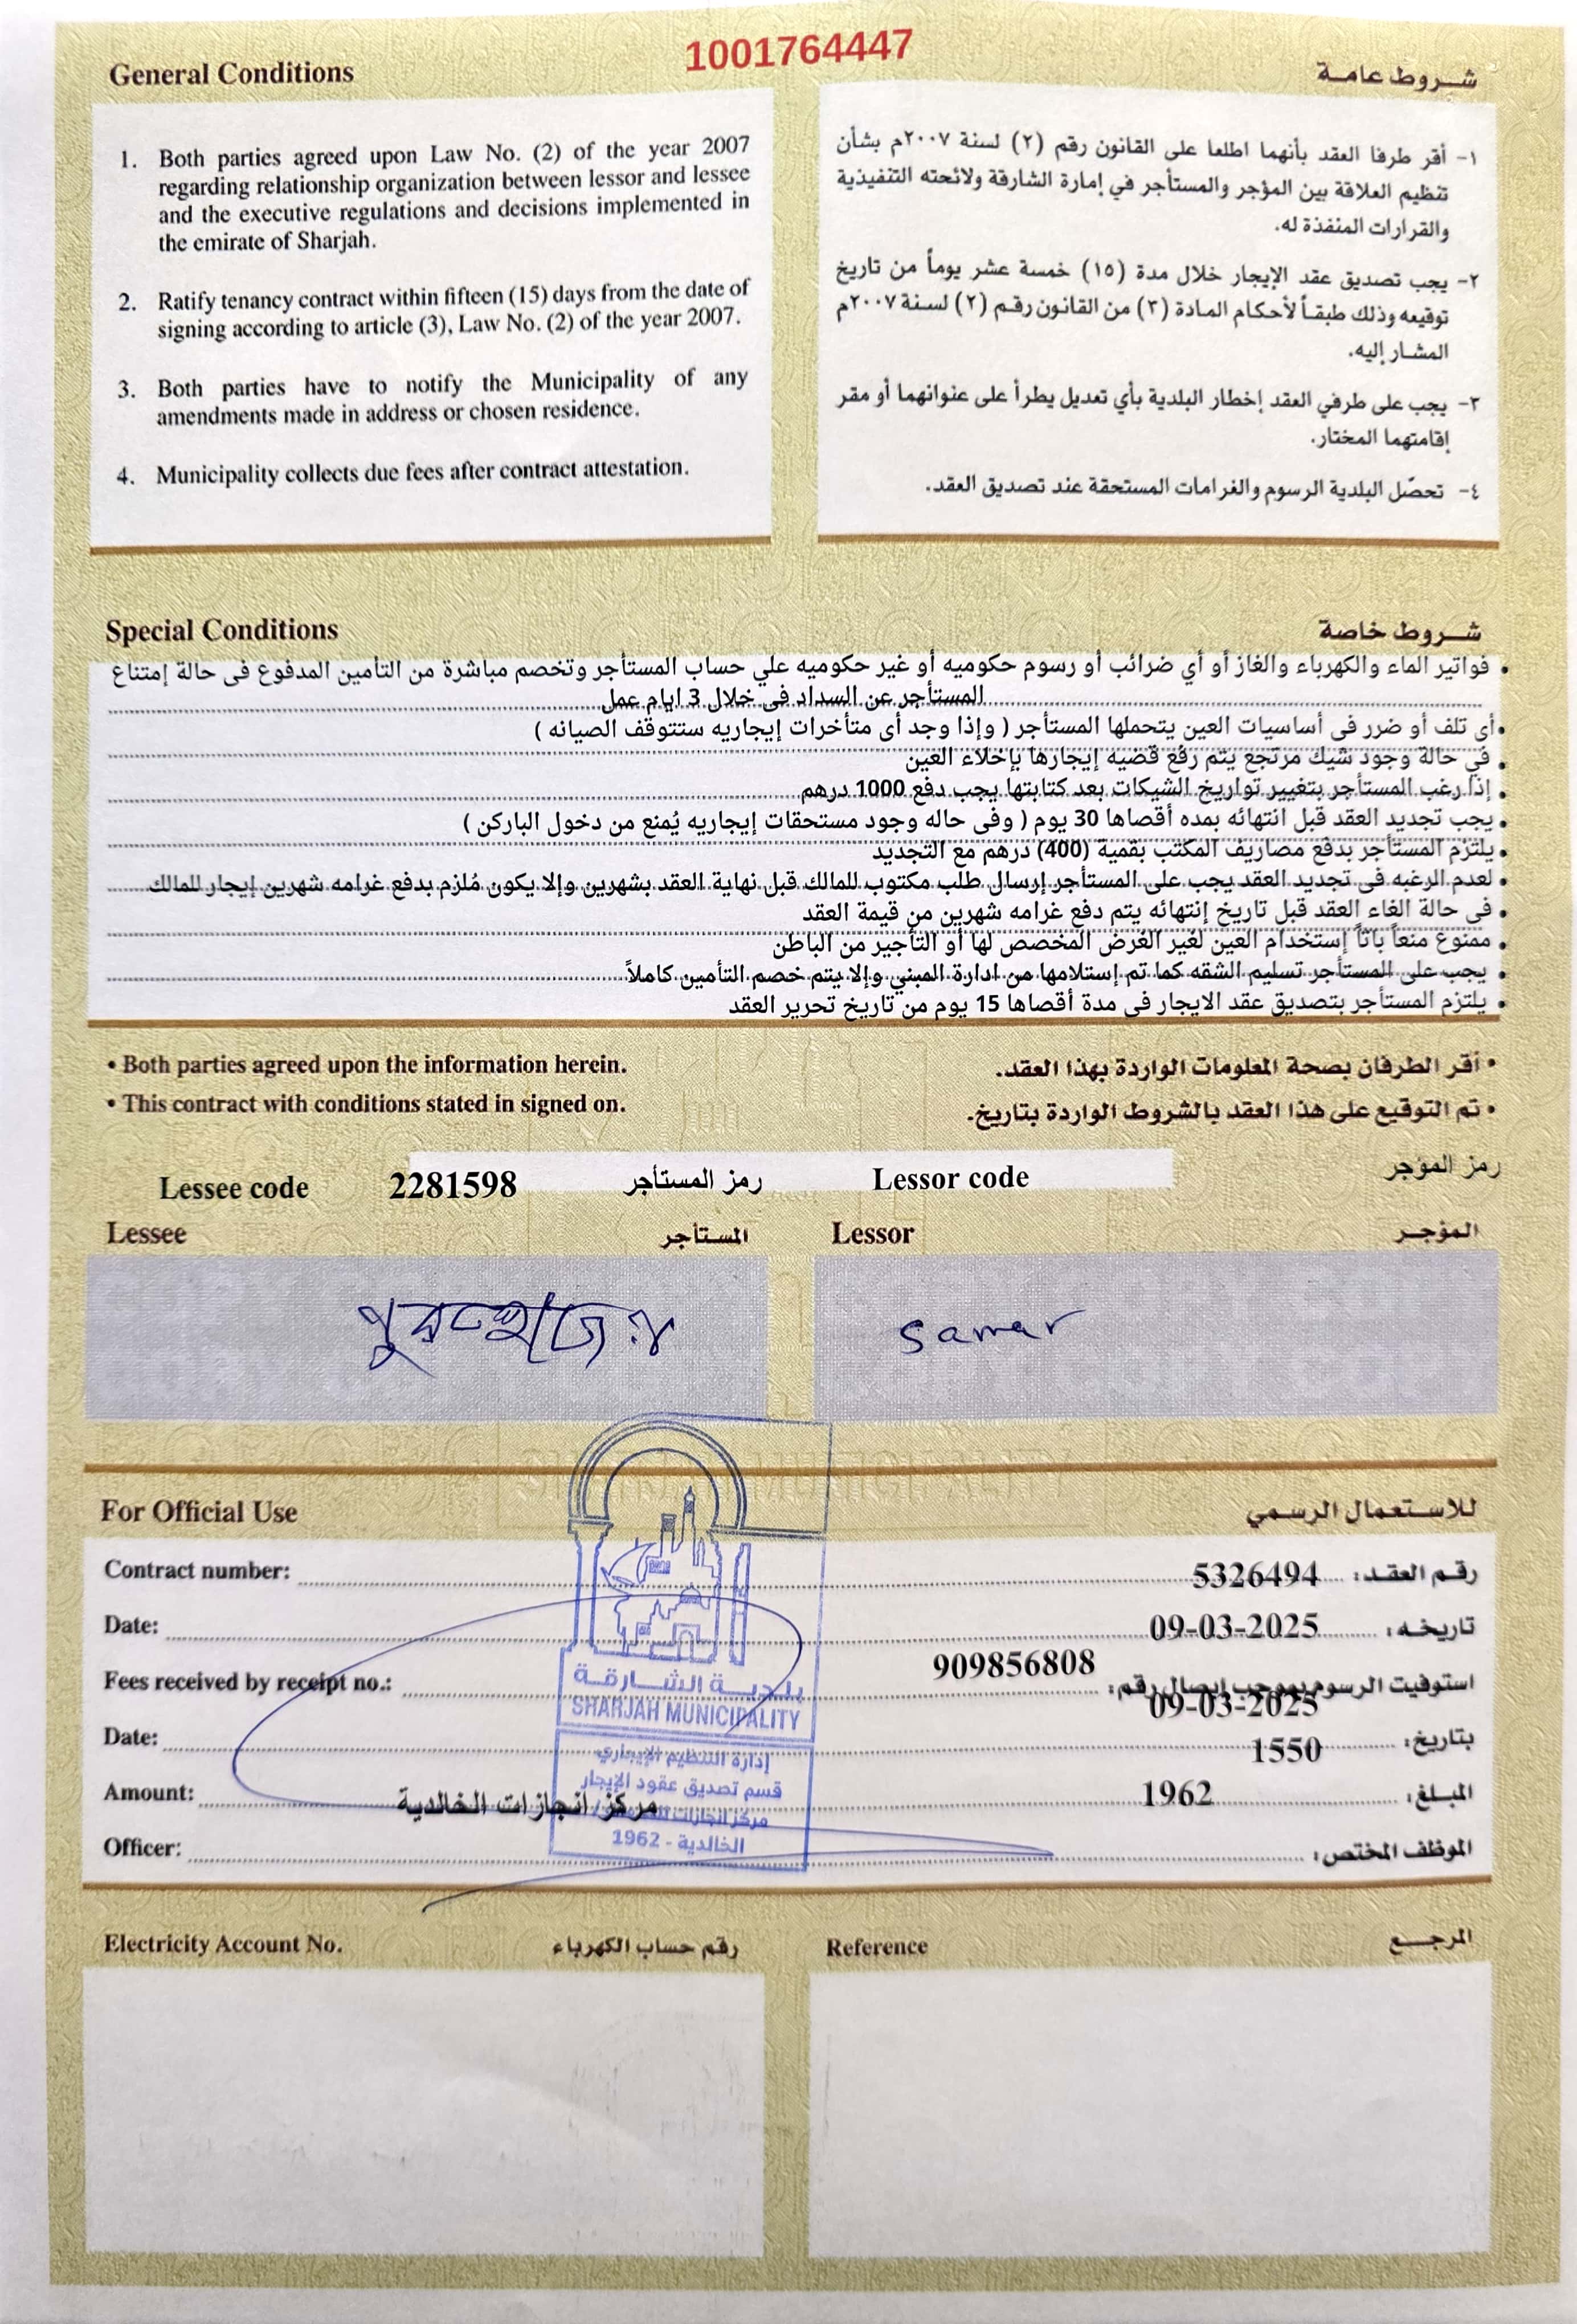 1001764447
General Conditions
شروط عامة
1. Both parties agreed upon Law No. (2) of the year 2007
regarding relationship organization between lessor and lessee
and the executive regulations and decisions implemented in
the emirate of Sharjah.
2. Ratify tenancy contract within fifteen (15) days from the date of
signing according to article (3), Law No. (2) of the year 2007.
3. Both parties have to notify the Municipality of any
amendments made in address or chosen residence.
4. Municipality collects due fees after contract attestation.
١- أقر طرفا العقد بأنهما اطلعا على القانون رقم (٢) لسنة ٢٠٠٧م بشأن
تنظيم العلاقة بين المؤجر والمستأجر في إمارة الشارقة ولائحته التنفيذية
والقرارات المنفذة له.
٢- يجب تصديق عقد الإيجار خلال مدة (١٥) خمسة عشر يوماً من تاريخ
توقيعه وذلك طبقاً لأحكام المادة (٣) من القانون رقم (٢) لسنة ٢٠٠٧م
المشار إليه.
٣- يجب على طرفي العقد إخطار البلدية بأي تعديل يطرأ على عنوانهما أو مقر
إقامتهما المختار.
٤- تحصّل البلدية الرسوم والغرامات المستحقة عند تصديق العقد.
Special Conditions
شروط خاصة
• فواتير الماء والكهرباء والغاز أو أي ضرائب أو رسوم حكوميه أو غير حكوميه علي حساب المستأجر وتخصم مباشرة من التأمين المدفوع فى حالة إمتناع
المستأجر عن السداد فى خلال 3 ايام عمل
• أى تلف أو ضرر فى أساسيات العين يتحملها المستأجر ( وإذا وجد أى متأخرات إيجاريه ستتوقف الصيانه )
• في حالة وجود شيك مرتجع يتم رفع قضيه إيجارها بإخلاء العين
• إذا رغب المستأجر بتغيير تواريخ الشيكات بعد كتابتها يجب دفع 1000 درهم
• يجب تجديد العقد قبل انتهائه بمده أقصاها 30 يوم ( وفى حاله وجود مستحقات إيجاريه يُمنع من دخول الباركن )
• يلتزم المستأجر بدفع مصاريف المكتب بقمية (400) درهم مع التجديد
• لعدم الرغبه فى تجديد العقد يجب على المستأجر إرسال طلب مكتوب للمالك قبل نهاية العقد بشهرين وإلا يكون مُلزم بدفع غرامه شهرين إيجار للمالك
• فى حالة الغاء العقد قبل تاريخ إنتهائه يتم دفع غرامه شهرين من قيمة العقد
• ممنوع منعاً باتاً إستخدام العين لغير الغرض المخصص لها أو التأجير من الباطن
• يجب على المستأجر تسليم الشقه كما تم إستلامها من ادارة المبني وإلا يتم خصم التأمين كاملاً
• يلتزم المستأجر بتصديق عقد الايجار فى مدة أقصاها 15 يوم من تاريخ تحرير العقد
• Both parties agreed upon the information herein.
• أقر الطرفان بصحة المعلومات الواردة بهذا العقد.
• This contract with conditions stated in signed on.
• تم التوقيع على هذا العقد بالشروط الواردة بتاريخ.
Lessee code 2281598 رمز المستأجر
Lessor code رمز المؤجر
Lessee المستأجر
Lessor المؤجر
samar
For Official Use
للاستعمال الرسمي
Contract number: 5326494 رقم العقد:
Date: 09-03-2025 تاريخه:
909856808
Fees received by receipt no.: استوفيت الرسوم بموجب إيصال رقم:
09-03-2025
Date: بتاريخ:
1550
Amount: 1962 المبلغ:
مركز انجازات الخالدية
Officer: الموظف المختص:
بلدية الشارقة
SHARJAH MUNICIPALITY
إدارة التنظيم الإيجاري
قسم تصديق عقود الإيجار
مركز انجازات
الخالدية - 1962
Electricity Account No. رقم حساب الكهرباء
Reference المرجع